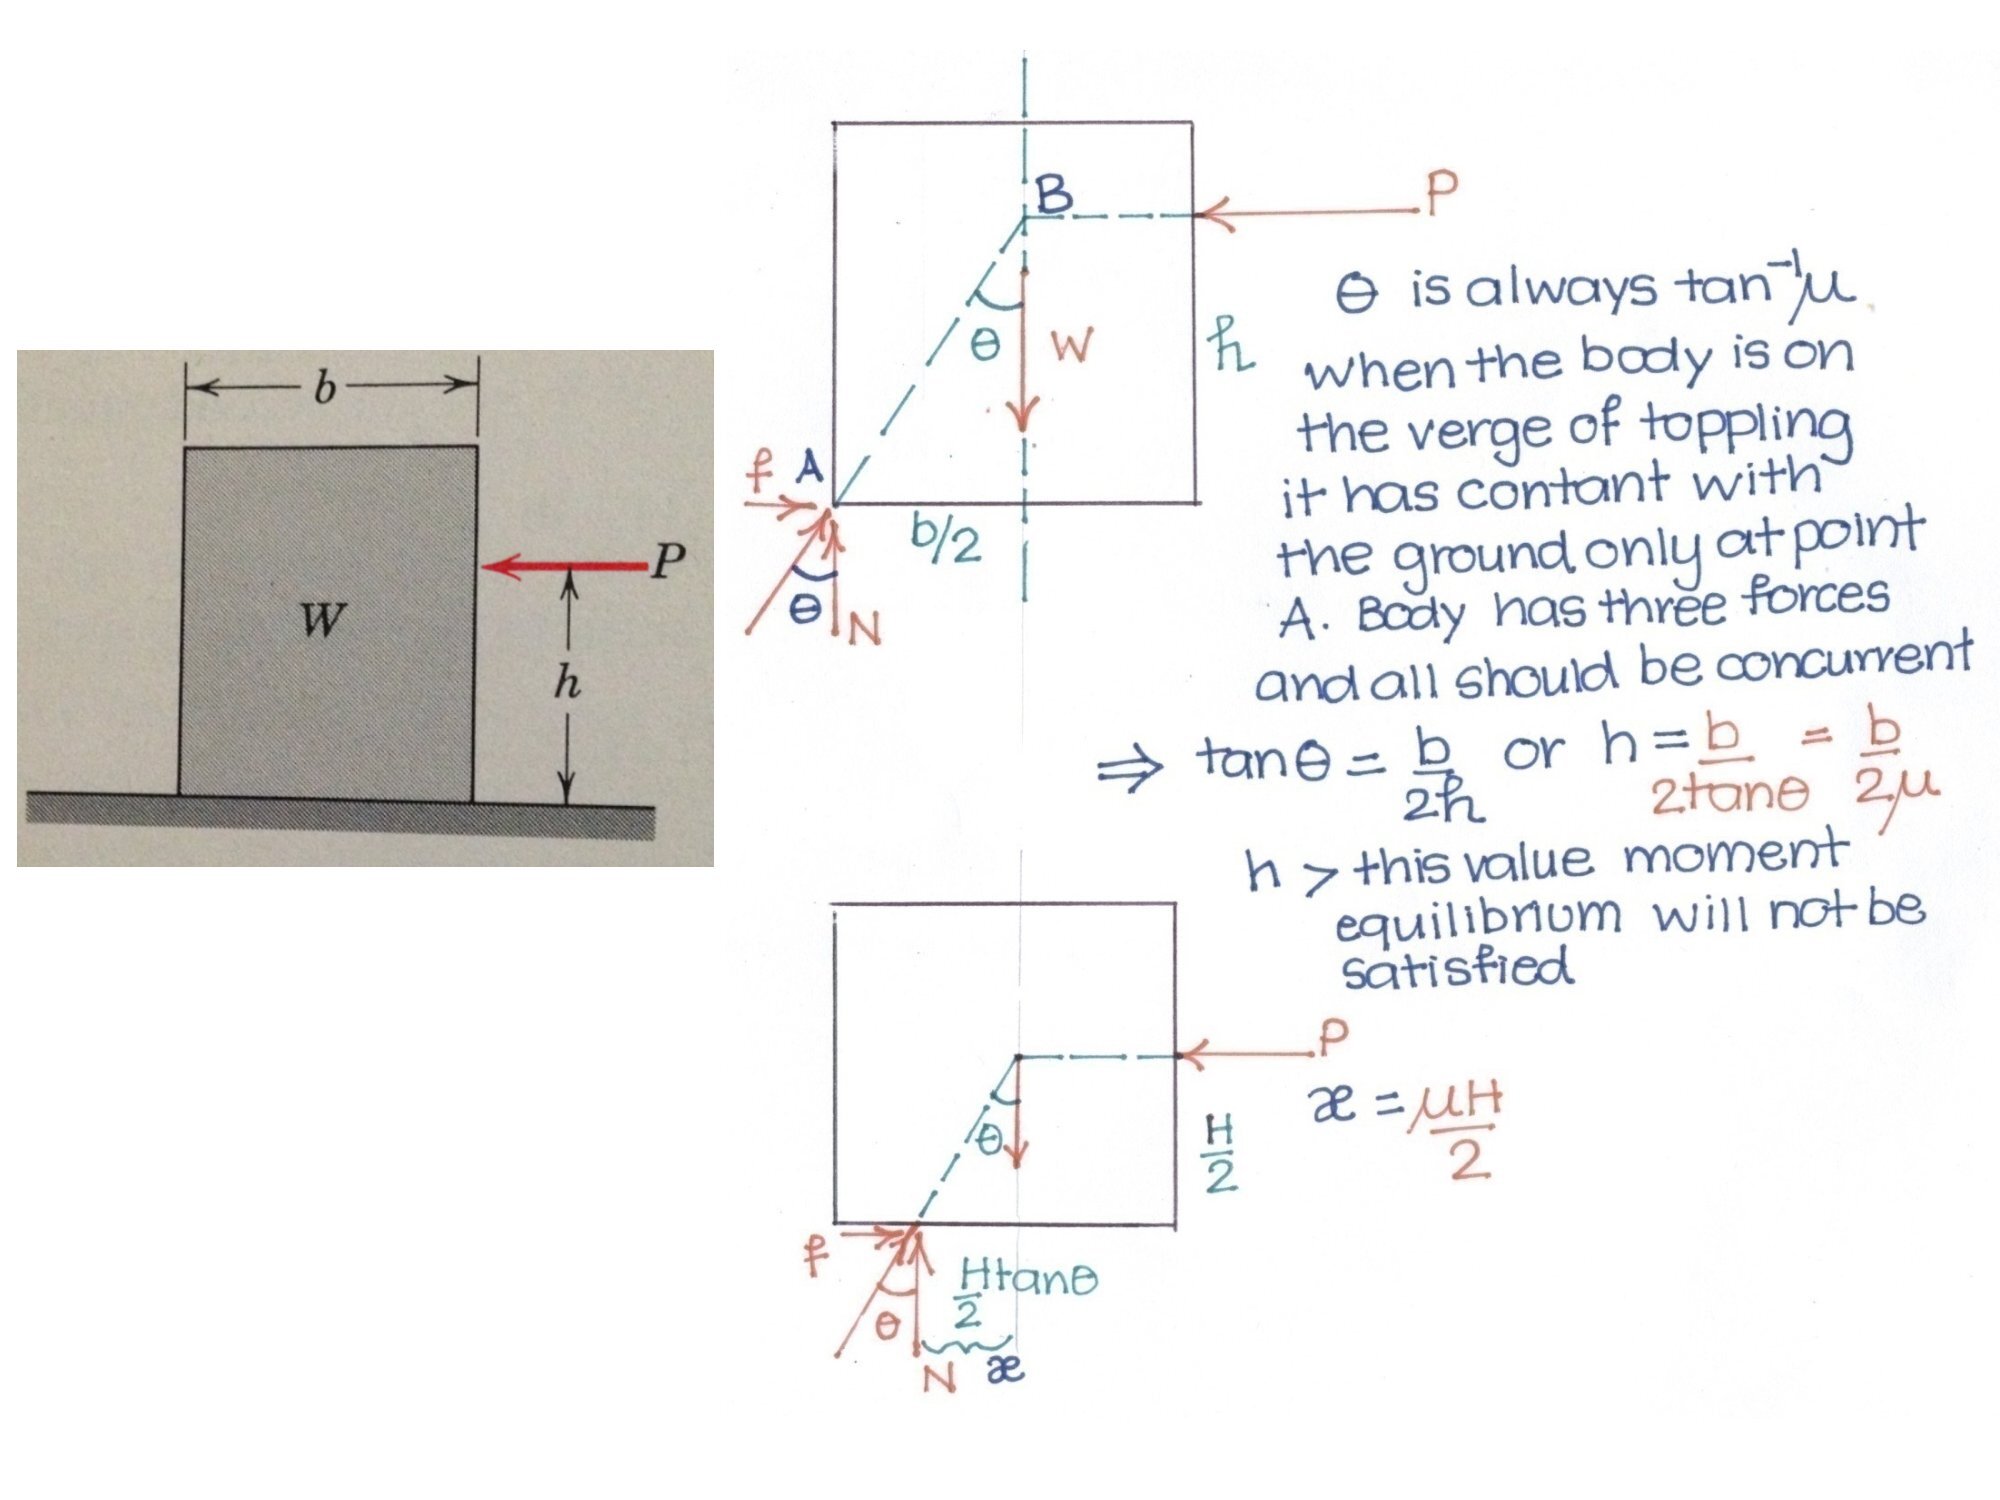 b
W
P
h
B
P
θ
W
h
f A
b/2
θ
N
θ is always tan⁻¹μ
when the body is on
the verge of toppling
it has contant with
the ground only at point
A. Body has three forces
and all should be concurrent
⇒ tanθ = b/2h or h = b/2tanθ = b/2μ
h > this value moment
equilibrium will not be
satisfied
P
x = μH/2
θ
H/2
f
H/2 tanθ
θ
N
x